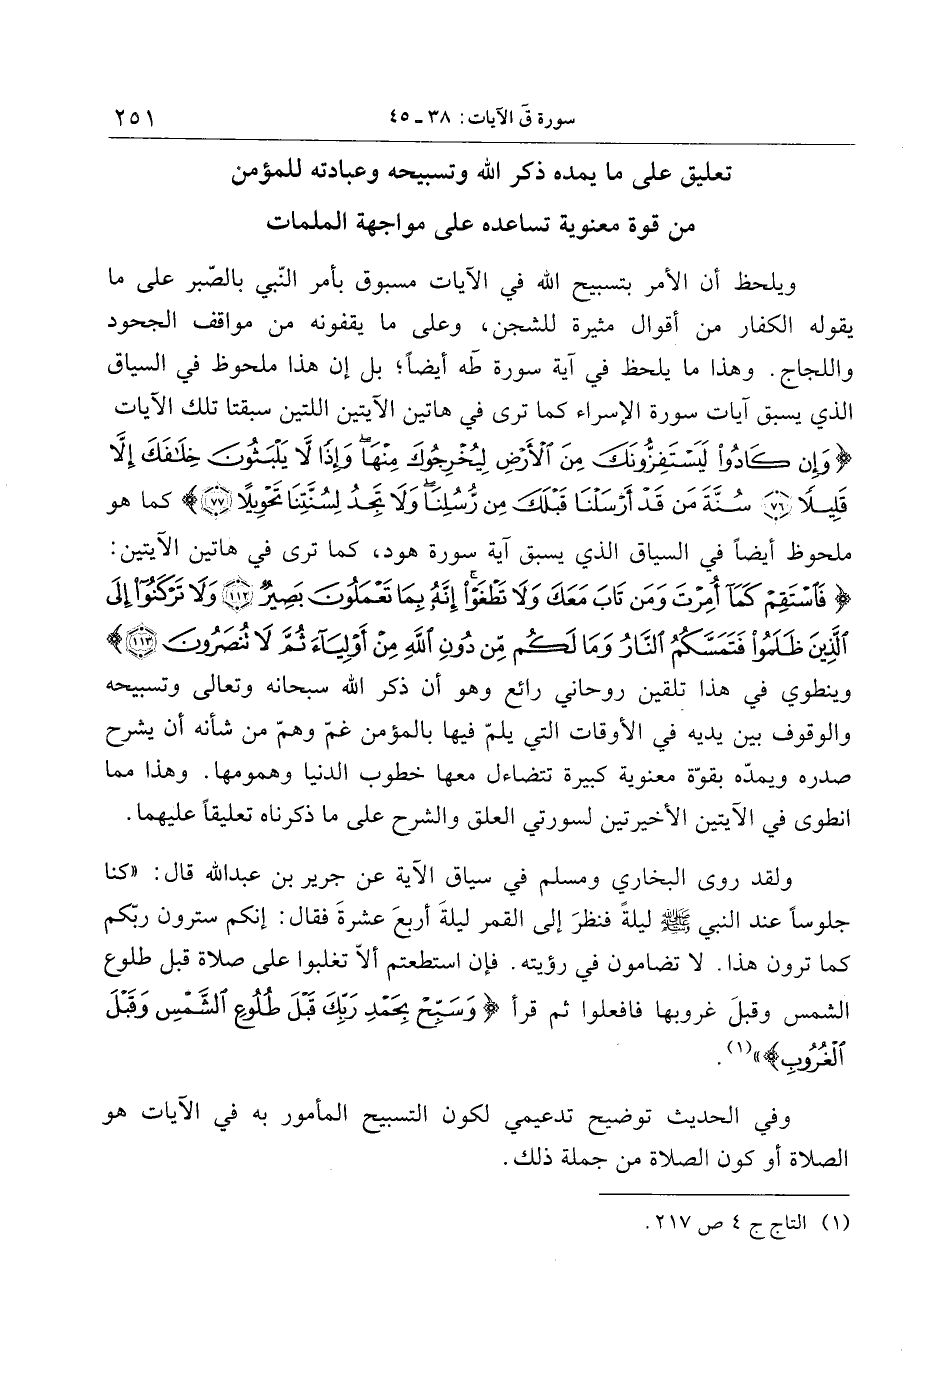 سورة قَ الآيات: ٣٨ ـ ٤٥ ٢٥١
تعليق على ما يمده ذكر الله وتسبيحه وعبادته للمؤمن
من قوة معنوية تساعده على مواجهة الملمات
ويلحظ أن الأمر بتسبيح الله في الآيات مسبوق بأمر النّبي بالصّبر على ما
يقوله الكفار من أقوال مثيرة للشجن، وعلى ما يقفونه من مواقف الجحود
واللجاج. وهذا ما يلحظ في آية سورة طه أيضاً؛ بل إن هذا ملحوظ في السياق
الذي يسبق آيات سورة الإسراء كما ترى في هاتين الآيتين اللتين سبقتا تلك الآيات
﴿ وَإِن كَادُواْ لَيَسْتَفِزُّونَكَ مِنَ ٱلْأَرْضِ لِيُخْرِجُوكَ مِنْهَاۖ وَإِذًا لَّا يَلْبَثُونَ خِلَٰفَكَ إِلَّا
قَلِيلًا ٧٦ سُنَّةَ مَن قَدْ أَرْسَلْنَا قَبْلَكَ مِن رُّسُلِنَاۖ وَلَا تَجِدُ لِسُنَّتِنَا تَحْوِيلًا ٧٧ ﴾ كما هو
ملحوظ أيضاً في السياق الذي يسبق آية سورة هود، كما ترى في هاتين الآيتين:
﴿ فَٱسْتَقِمْ كَمَآ أُمِرْتَ وَمَن تَابَ مَعَكَ وَلَا تَطْغَوْاْۚ إِنَّهُۥ بِمَا تَعْمَلُونَ بَصِيرٌ ١١٢ وَلَا تَرْكَنُوٓاْ إِلَى
ٱلَّذِينَ ظَلَمُواْ فَتَمَسَّكُمُ ٱلنَّارُ وَمَا لَكُم مِّن دُونِ ٱللَّهِ مِنْ أَوْلِيَآءَ ثُمَّ لَا تُنصَرُونَ ١١٣ ﴾
وينطوي في هذا تلقين روحاني رائع وهو أن ذكر الله سبحانه وتعالى وتسبيحه
والوقوف بين يديه في الأوقات التي يلمّ فيها بالمؤمن غمّ وهمّ من شأنه أن يشرح
صدره ويمدّه بقوّة معنوية كبيرة تتضاءل معها خطوب الدنيا وهمومها. وهذا مما
انطوى في الآيتين الأخيرتين لسورتي العلق والشرح على ما ذكرناه تعليقاً عليهما.
ولقد روى البخاري ومسلم في سياق الآية عن جرير بن عبدالله قال: «كنا
جلوساً عند النبي ﷺ ليلةً فنظرَ إلى القمر ليلةَ أربعَ عشرةَ فقال: إنكم سترون ربّكم
كما ترون هذا. لا تضامون في رؤيته. فإن استطعتم ألاّ تغلبوا على صلاة قبل طلوع
الشمس وقبلَ غروبها فافعلوا ثم قرأ ﴿ وَسَبِّحْ بِحَمْدِ رَبِّكَ قَبْلَ طُلُوعِ ٱلشَّمْسِ وَقَبْلَ
ٱلْغُرُوبِ ﴾»(١).
وفي الحديث توضيح تدعيمي لكون التسبيح المأمور به في الآيات هو
الصلاة أو كون الصلاة من جملة ذلك.
(١) التاج ج ٤ ص ٢١٧.